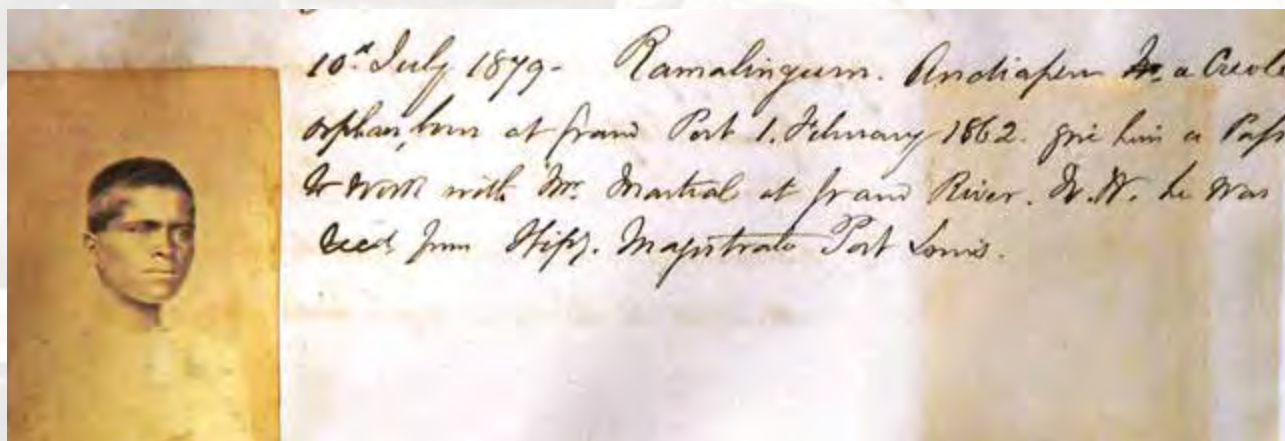 10th July 1879- Ramalingum. Andiapen a Creole
orphan, born at Grand Port 1. February 1862. give him a Pass
to work with Mr. Martial at Grand River. N.W. he was
from Stipy. Magistrate Port Louis.